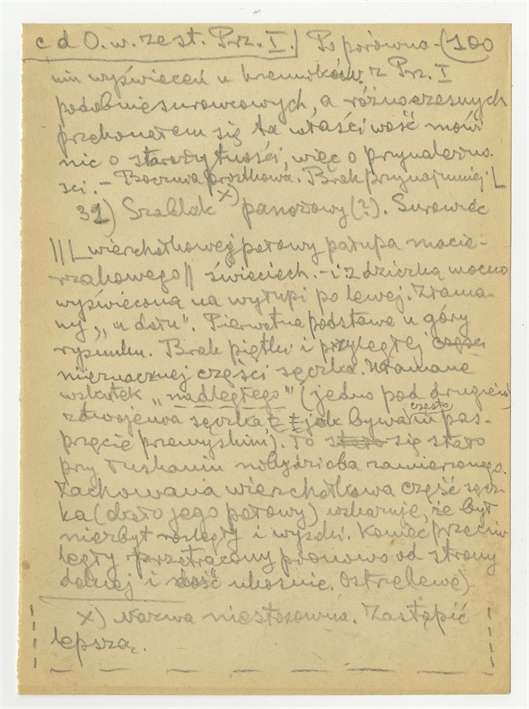 c d O. w. ze st. Prz. I.) Po porówna- (100
niu wyświeceń u krzemików z Prz. I
podobnie surowcowych, a różnoczesnych
przekonałem się, ta właściwość mówi
nic o starożytności, więc o przynależno
ści. – Boczna próżkowa. Brak przynajmniej L
32) Szablak x) panożowy (?). Surowiec
|| L wierzchołkowej połowy łatupa macie-
rzakowego || świeciech. - i z dziczką mocno
wyświeconą na wyłupi po lewej. Złama-
ny „u dołu". Pierwotna podstawa u góry
rysunku. Brak piętki i przyległej
nieznacznej części sęczka. Ułamane
wskutek „nadległego" (jedno pod drugiem)
zdwojenia sęczka, jak bywa często w pas-
przęcie przemyskim). To się stało
przy łuskaniu niby dzioba zamierzonego.
Zachowana wierzchołkowa część sęcz-
ka (dało jego połowy) wskazuje, że był
niezbyt rozległy i wysoki. Koniec przeciw
legły przetrącony pionowo od strony
dolnej i dość ukośnie. Ostrze lewe)
x) Nazwa niestosowna. Zastąpić
lepszą.